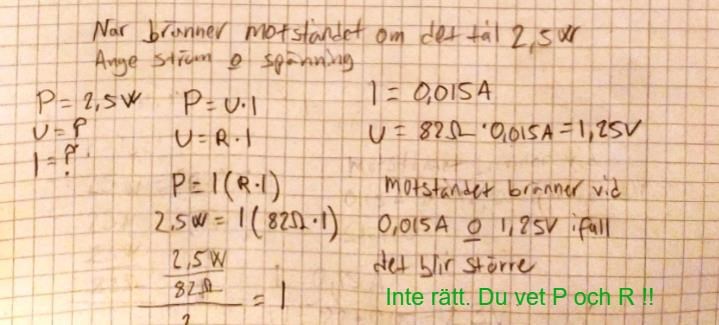 När bränner motståndet om det tål 2,5W
Ange ström o spänning
P = 2,5W
U = ?
I = ?
P = U·I
U = R·I
P = I(R·I)
2,5W = I(82Ω·I)
2,5W
82Ω
2
= I
I = 0,015A
U = 82Ω·0,015A = 1,25V
Motståndet bränner vid
0,015A o 1,25V ifall
det blir större
Inte rätt. Du vet P och R !!